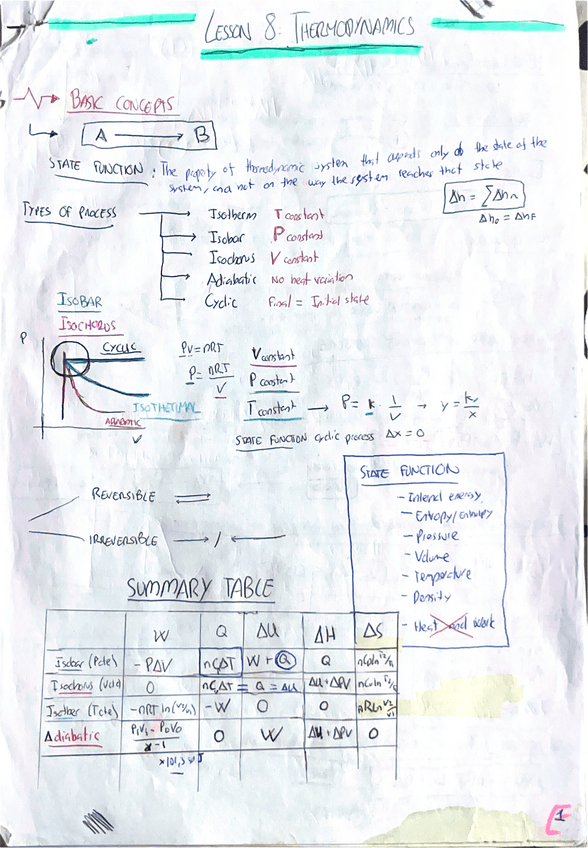 LESSON 8: THERMODYNAMICS
BASIC CONCEPTS
A → B
STATE FUNCTION: The property of thermodynamic system that depends only of the state of the
system, and not on the way the system reaches that state
Δh = ∑Δhn
Δh₀ = ΔhF
TYPES OF PROCESS
Isotherm T constant
Isobar P constant
Isochorus V constant
Adiabatic No heat variation
Cyclic Final = Initial state
ISOBAR
ISOCHORUS
P
CYCLIC
ISOTHETIMAL
ADIABATIC
V
PV = nRT
P = nRT/V
V constant
P constant
T constant → P = k · 1/V → y = k/x
STATE FUNCTION cyclic process Δx = 0
REVERSIBLE ⇌
IRREVERSIBLE → / ←
STATE FUNCTION
- Internal energy
- Entropy/Enthalpy
- Pressure
- Volume
- Temperature
- Density
- Heat and work
SUMMARY TABLE
W Q ΔU ΔH ΔS
Isobar (Pcte) -PΔV nCpΔT W + Q Q nCpln
Isochorus (Vcte) 0 nCvΔT = Q = ΔU ΔU + ΔPV nCvln
Isother (Tcte) -nRT ln (V2/V1) -W 0 0 nRln V2/V1
Adiabatic P₁V₁ - P₀V₀ / γ - 1 0 W ΔU + ΔPV 0
x101,3 → J
1